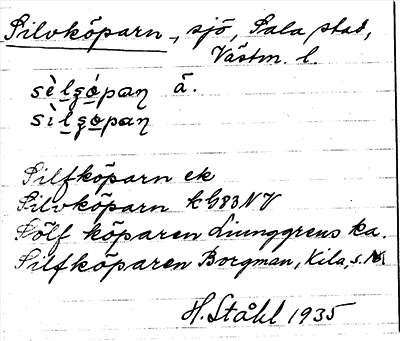 Silvköparn, sjö, Sala stad,
Västm. l.
sèlgópaŋ å.
sìlgopaŋ
Silfköparn ek
Silvköparn kG83NV
Sölf köparen Liunggrens ka.
Silfköparen Borgman, Kila, s.
H. Ståhl 1935